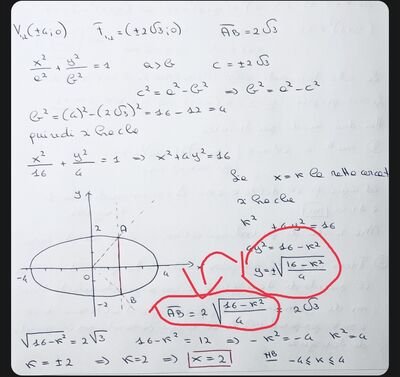 V₁,₂(±4;0) F₁,₂=(±2√3;0) AB=2√3
x²/a² + y²/b² = 1 a>b c=±2√3
c²=a²-b² ⇒ b²=a²-c²
b²=(4)²-(2√3)²=16-12=4
quindi si ha che
x²/16 + y²/4 = 1 ⇒ x²+4y²=16
Se x=k la retta
si ha che
k²+4y²=16
4y²=16-k²
y=±√((16-k²)/4)
y
2
A
-4
0
4
x
-2
B
AB=2√((16-k²)/4) = 2√3
√(16-k²)=2√3 16-k²=12 ⇒ -k²=-4 k²=4
k=±2 ⇒ k=2 ⇒ x=2 NB -4≤k≤4